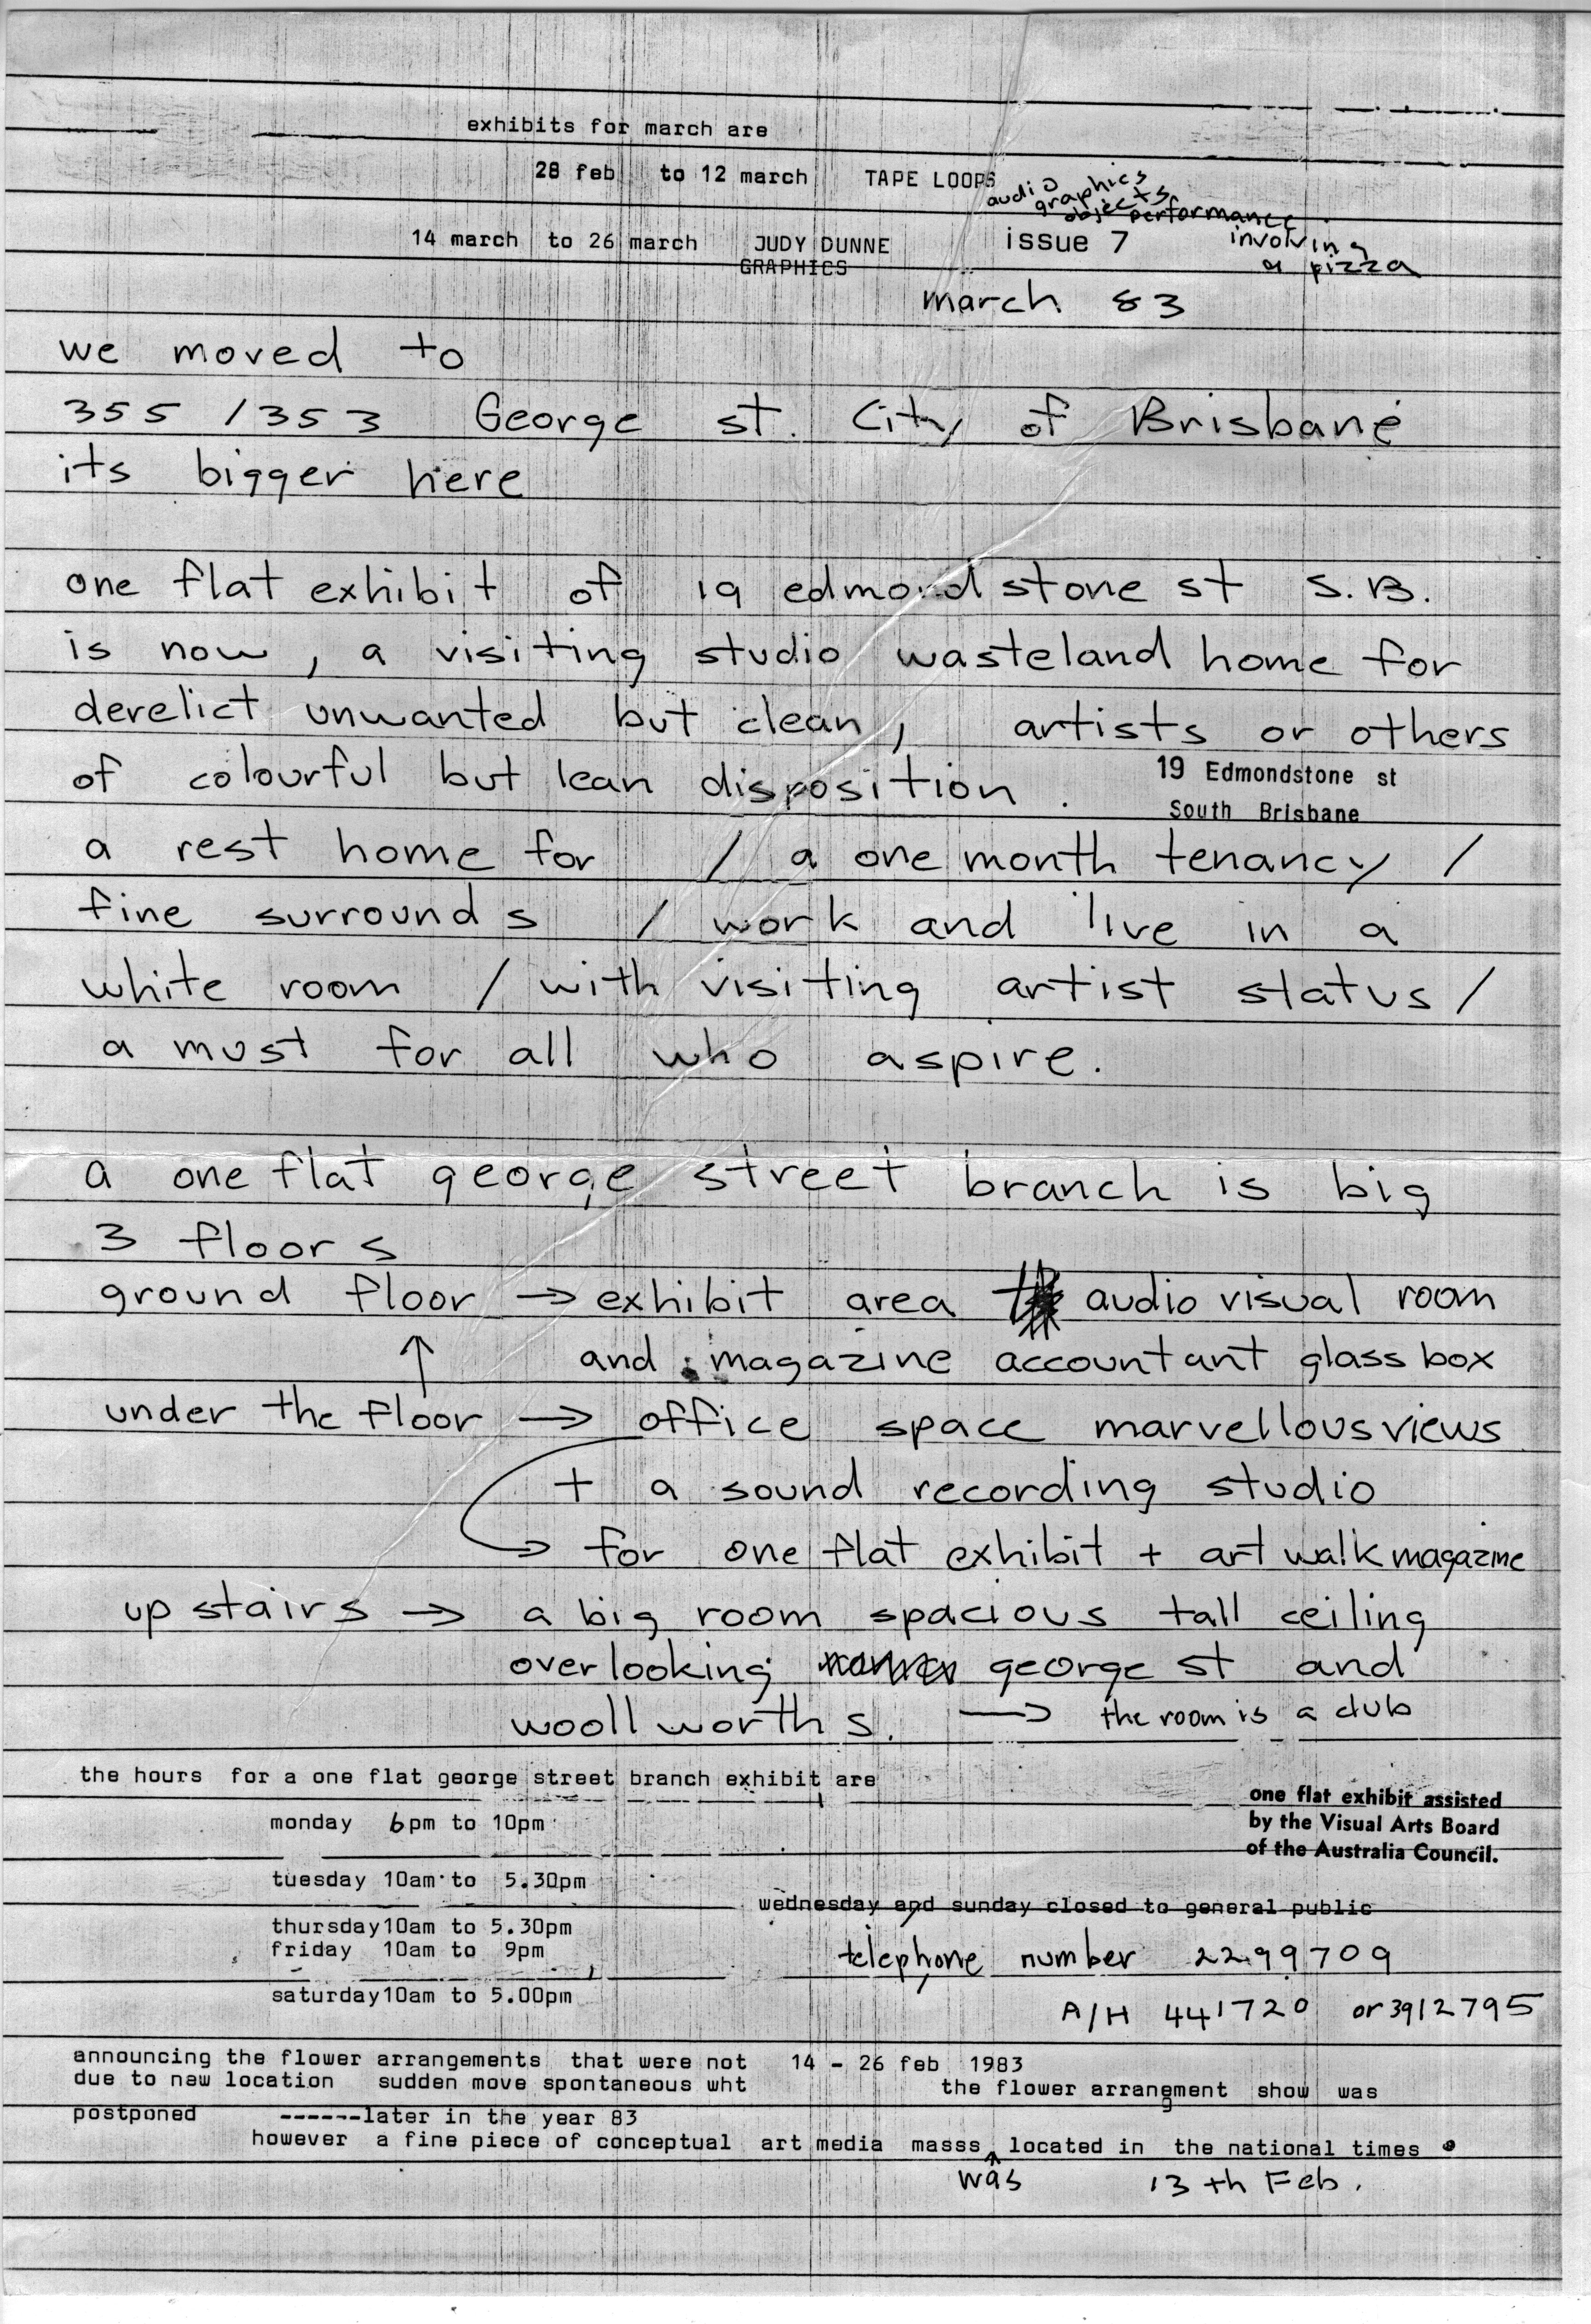 exhibits for march are
28 feb to 12 march TAPE LOOPS
audio
graphics
objects
performance
involving
a pizza
14 march to 26 march JUDY DUNNE issue 7
GRAPHICS
march 83
we moved to
355 / 353 George st. City of Brisbane
its bigger here
one flat exhibit of 19 edmondstone st S.B.
is now, a visiting studio wasteland home for
derelict unwanted but clean, artists or others
of colourful but lean disposition.
19 Edmondstone st
South Brisbane
a rest home for / a one month tenancy /
fine surrounds / work and live in a
white room / with visiting artist status /
a must for all who aspire.
a one flat george street branch is big
3 floors
ground floor → exhibit area audio visual room
↑ and magazine accountant glass box
under the floor → office space marvellous views
+ a sound recording studio
→ for one flat exhibit + art walk magazine
up stairs → a big room spacious tall ceiling
overlooking george st and
woollworths. → the room is a club
the hours for a one flat george street branch exhibit are
monday 6pm to 10pm
tuesday 10am to 5.30pm
thursday 10am to 5.30pm
friday 10am to 9pm
saturday 10am to 5.00pm
one flat exhibit assisted
by the Visual Arts Board
of the Australia Council.
wednesday and sunday closed to general public
telephone number 2299709
A/H 441720 or 3912795
announcing the flower arrangements that were not 14 - 26 feb 1983
due to new location sudden move spontaneous wht the flower arrangement show was
postponed ------later in the year 83
however a fine piece of conceptual art media masss was located in the national times
13th Feb.